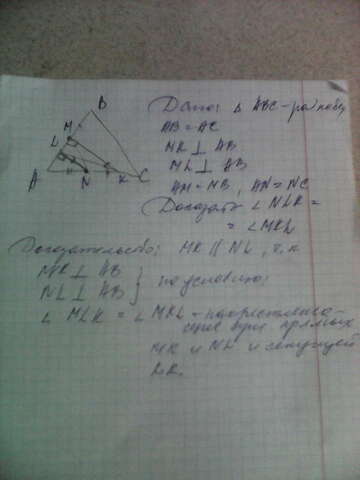 B
M
L
A
N
K
C
Дано: Δ ABC - равноб
AB = AC
MK ⊥ AB
ML ⊥ AB
AM = MB, AN = NC
Доказать ∠ NLK =
= ∠ MKL
Доказательство: MK || NL, т.к
MK ⊥ AB
NL ⊥ AB } по условию;
∠ MLK = ∠ MKL - накрестлежа-
щие при прямых
MK и NL и секущей
LK.